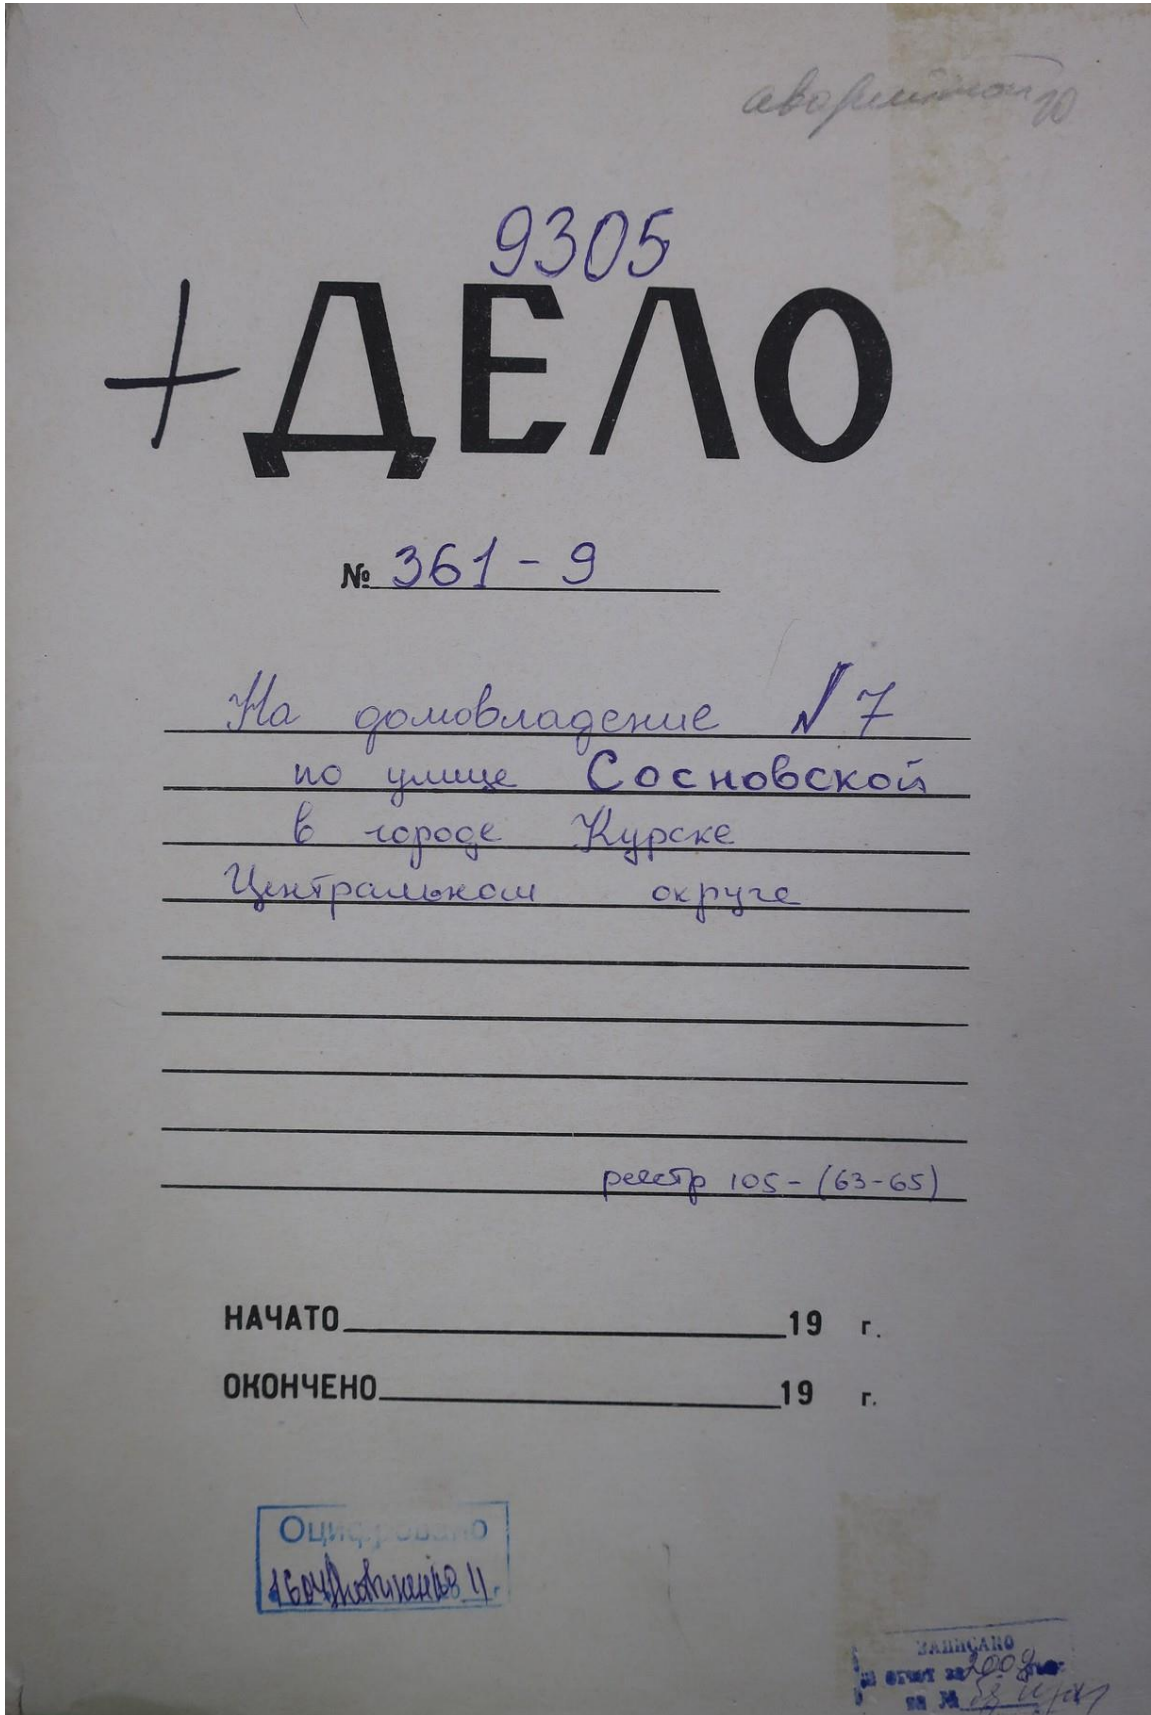 9305
+ ДЕЛО
№ 361-9
На домовладение № 7
по улице Сосновской
в городе Курске
Центральном округе
реестр 105-(63-65)
НАЧАТО 19 г.
ОКОНЧЕНО 19 г.
Оцифровано
ЗАПИСАНО
в отчет за 2009
за №